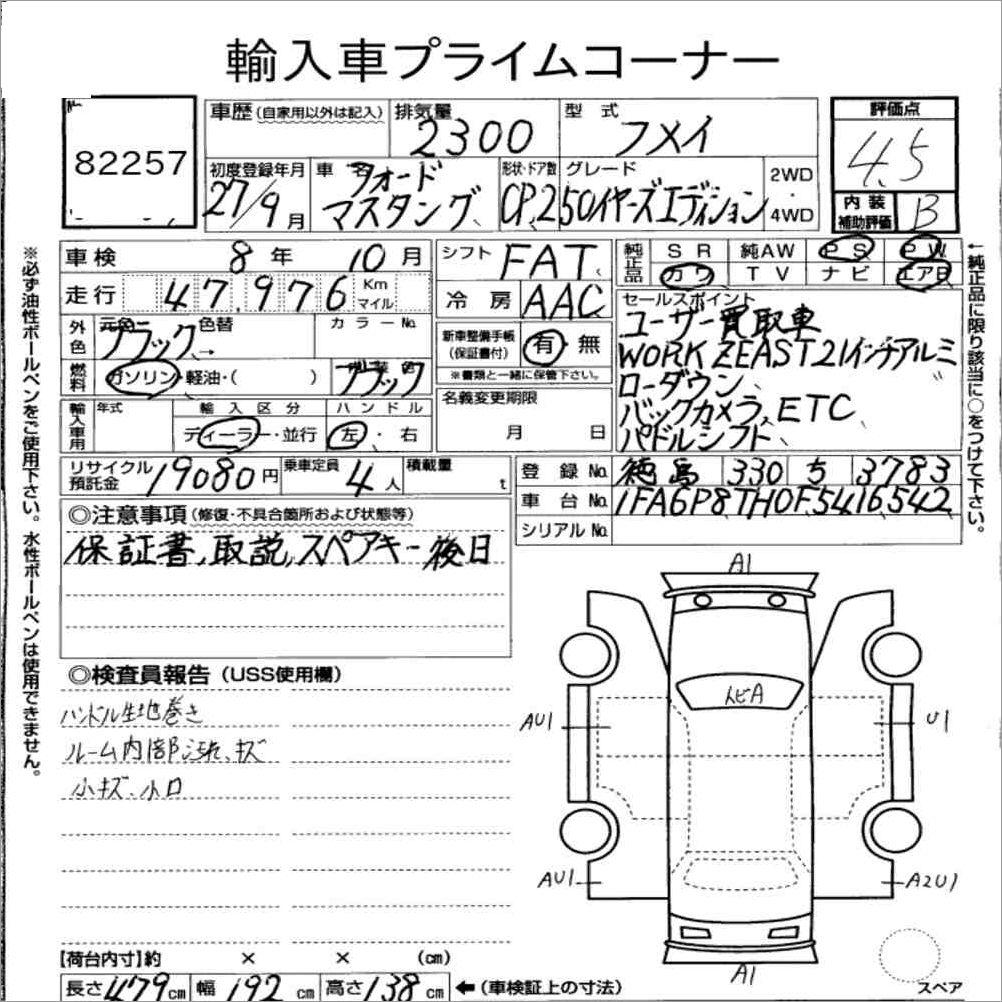 輸入車プライムコーナー
82257
車歴 (自家用以外は記入)
排気量 2300
型式 フメイ
評価点 4.5
初度登録年月 27/9月
車名 フォード マスタング
形状・ドア数 CP.2
グレード 50イヤーズエディション
2WD・4WD
内装補助評価 B
車検 8年 10月
シフト FAT
純正品 SR 純AW PS PW
カワ TV ナビ エアB
走行 47,976 Km マイル
冷房 AAC
セールスポイント
ユーザー買取車
WORK ZEAST 21インチアルミ
ローダウン 〃
バックカメラ、ETC
パドルシフト
外色 元色 ブラック → 色替
カラーNo.
新車整備手帳(保証書付) 有・無
※書類と一緒に保管下さい。
燃料 ガソリン・軽油・( )
内装色 ブラック
名義変更期限 月 日
輸入車用 年式
輸入区分 ディーラー・並行
ハンドル 左・右
リサイクル預託金 19080円
乗車定員 4人
積載量 t
登録No. 徳島 330 ち 3783
車台No. 1FA6P8TH0F5416542
シリアルNo.
◎注意事項 (修復・不具合箇所および状態等)
保証書、取説、スペアキー後日
◎検査員報告 (USS使用欄)
ハンドル生地巻き
ルーム内部汚れ、キズ
小キズ、小凹
A1
トビA
AU1
U1
AU1
A2U1
A1
スペア
【荷台内寸】約 × × (cm)
長さ479cm 幅192cm 高さ138cm ←(車検証上の寸法)
※必ず油性ボールペンをご使用下さい。水性ボールペンは使用できません。
←純正品に限り該当に○をつけて下さい。